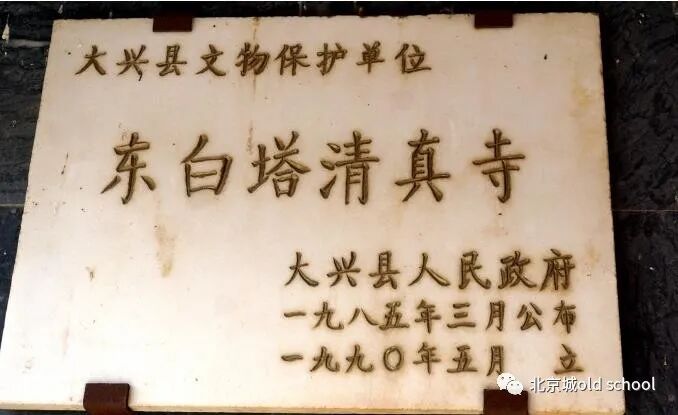 大兴县文物保护单位
东白塔清真寺
大兴县人民政府
一九八五年三月公布
一九九〇年五月 立
北京城old school